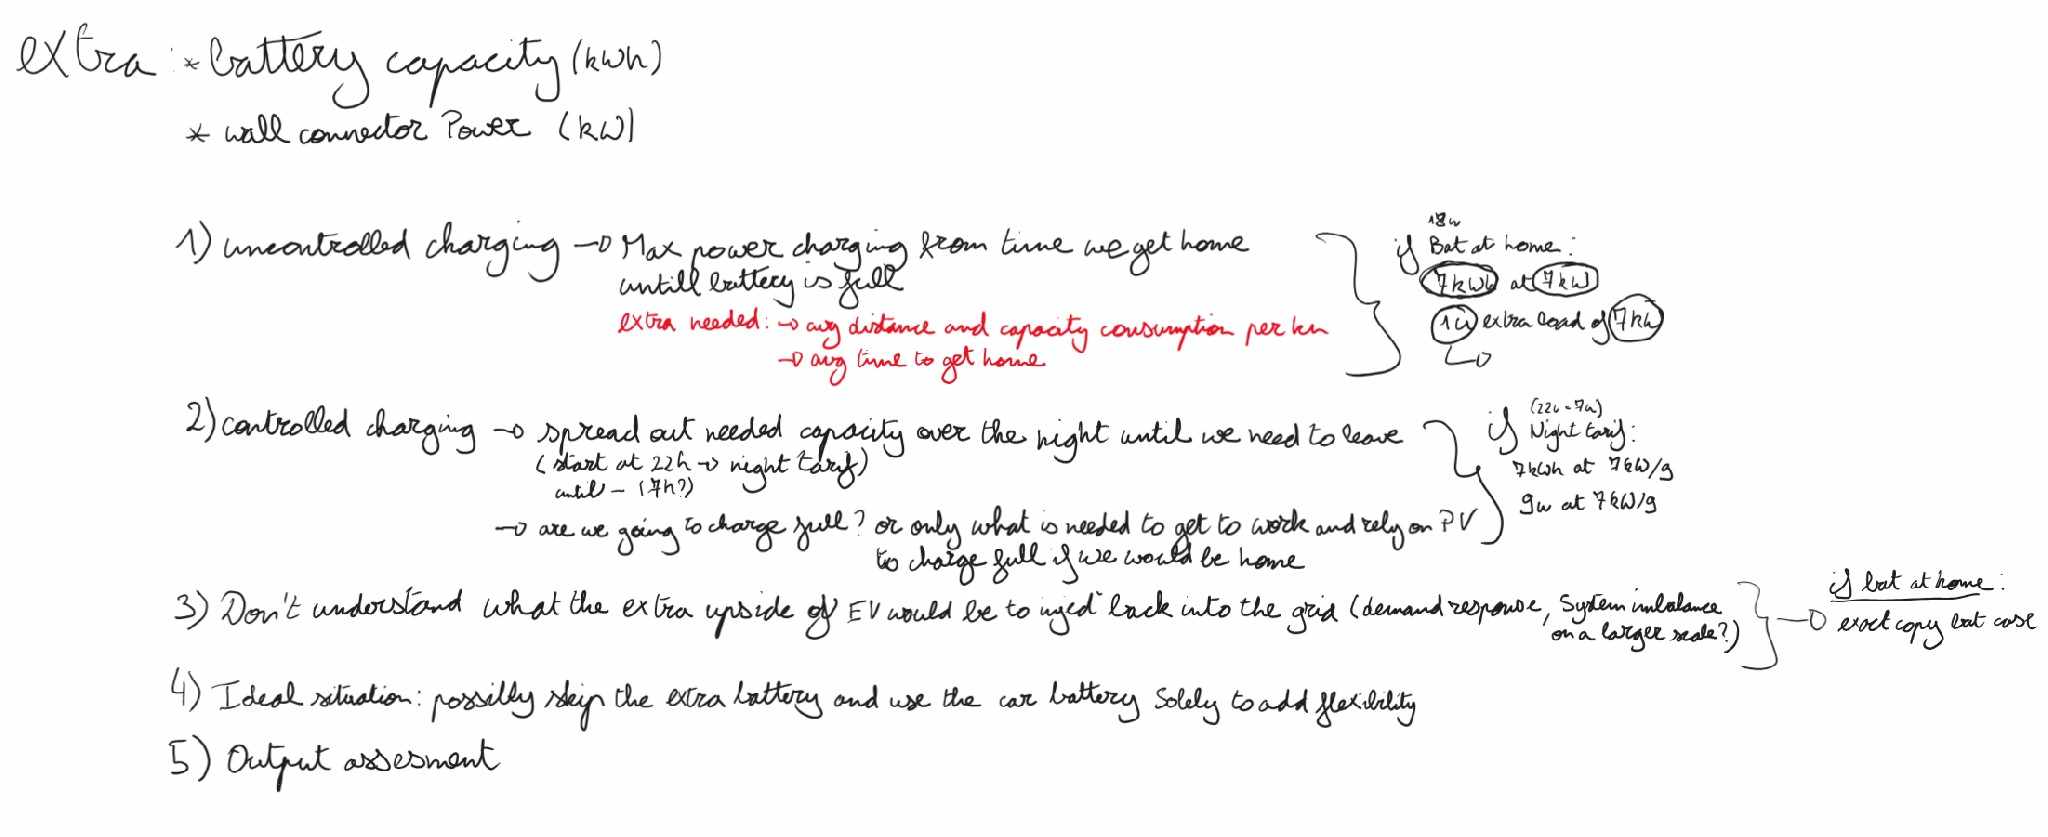 extra : * battery capacity (kWh)
* wall connector Power (kW)
1) uncontrolled charging → Max power charging from time we get home
untill battery is full
extra needed: → avg distance and capacity consumption per km
→ avg time to get home
18u
if Bat at home :
7kWh at 7kW
1u extra load of 7kW
2) controlled charging → spread out needed capacity over the night until we need to leave
(start at 22h → night tarif)
until - (7h?)
→ are we going to charge full? or only what is needed to get to work and rely on PV
to charge full if we would be home
(22u - 7u)
if Night tarif:
7kWh at 7kW/9
9u at 7kW/9
3) Don't understand what the extra upside of EV would be to injed back into the grid (demand response, System imbalance
on a larger scale?)
if bat at home :
→ exact copy bat case
4) Ideal situation: possibly skip the extra battery and use the car battery Solely to add flexibility
5) Output assesment